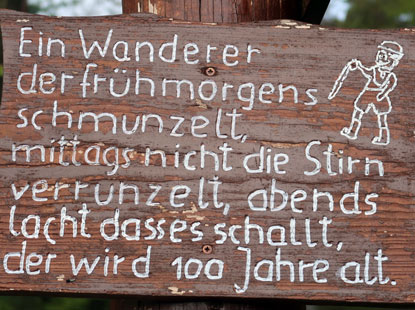 Ein Wanderer
der frühmorgens
schmunzelt,
mittags nicht die Stirn
verrunzelt, abends
lacht dasses schallt,
der wird 100 Jahre alt.